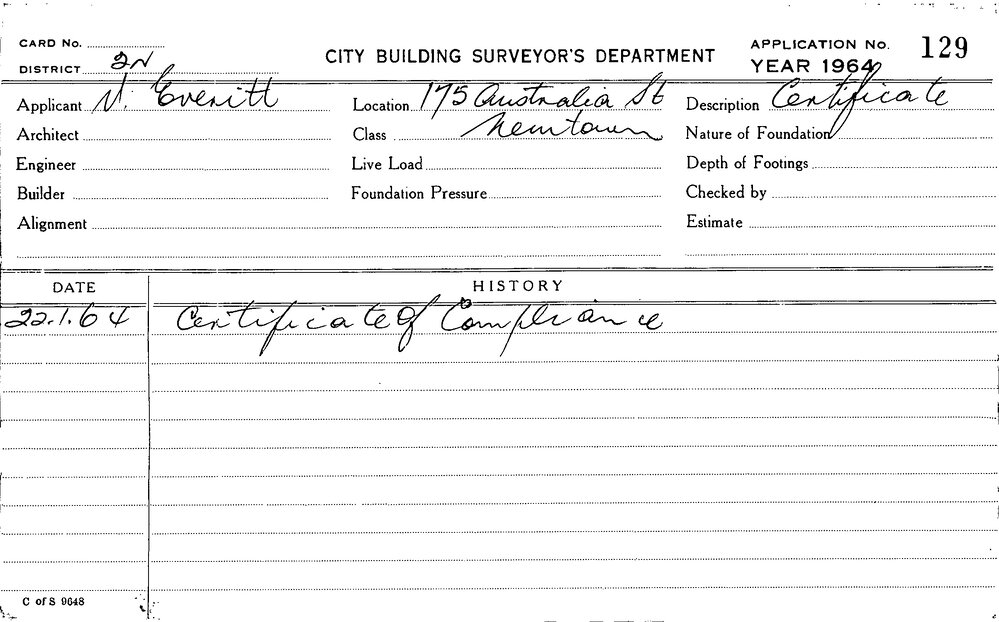 CARD No.
DISTRICT 2N
CITY BUILDING SURVEYOR'S DEPARTMENT
APPLICATION No. 129
YEAR 1964
Applicant V. Everitt
Location 175 Australia St
Description Certificate
Architect
Class Newtown
Nature of Foundation
Engineer
Live Load
Depth of Footings
Builder
Foundation Pressure
Checked by
Alignment
Estimate
DATE HISTORY
22.1.64 Certificate of Compliance
C of S 9648